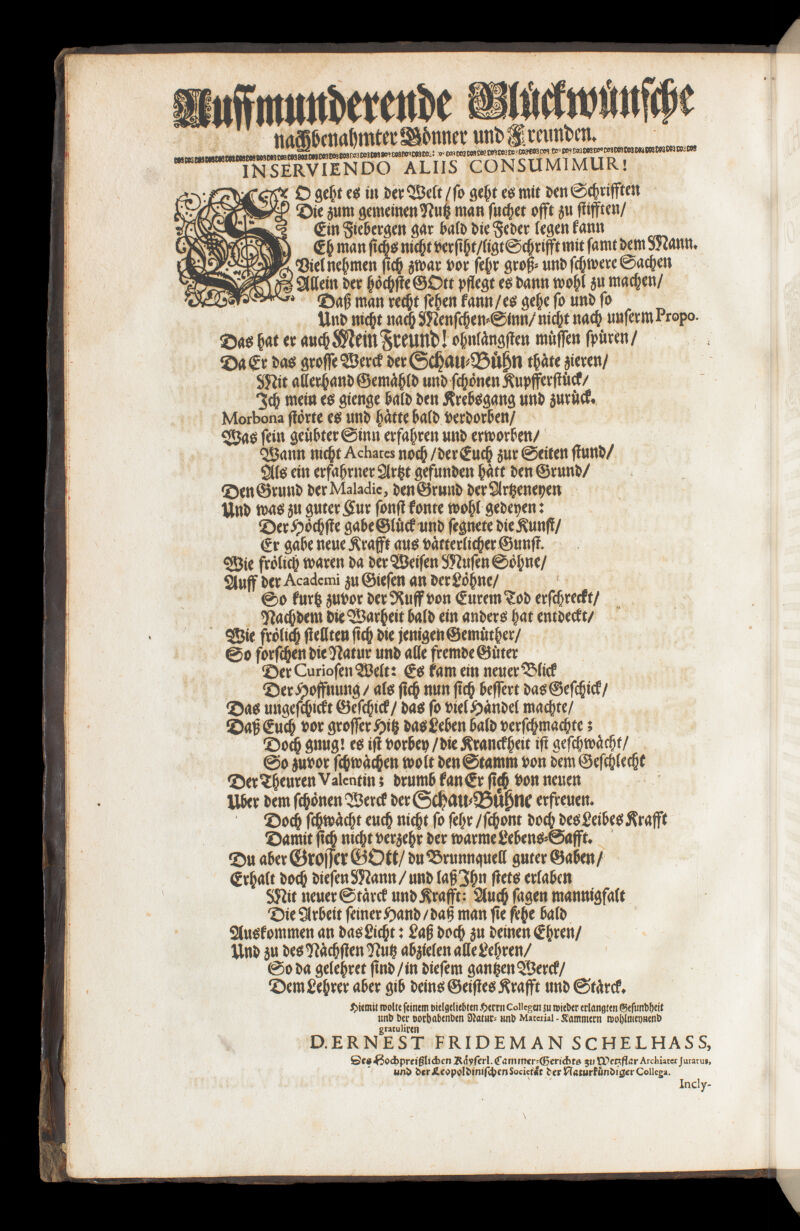 Auffmunderende Glückwünsche
nachbenahmter Gönner und Freunden.
INSERVIENDO ALIIS CONSUMIMUR!
SO geht es in der Welt / so geht es mit den Schrifften
Die zum gemeinen Nutz man suchet offt zu stifften /
Ein Fiebergen gar bald die Feder legen kann
Eh man sichs nicht versiht / ligt Schrifft mit samt dem Mann.
Viel nehmen sich zwar vor sehr groß- und schwere Sachen
Allein der höchste GOtt pflegt es dann wohl zu machen /
Daß man recht sehen kann / es gehe so und so
Und nicht nach Menschen-Sinn / nicht nach unserm Propo.
Das hat er auch Mein Freund! ohnlängsten müssen spüren /
Da Er das grosse Werck der Schau-Bühn thäte zieren /
Mit allerhand Gemähld und schönen Kupfferstück /
Ich mein es gienge bald den Krebsgang und zurück.
Morbona störte es und hätte bald verdorben /
Was sein geübter Sinn erfahren und erworben /
Wann nicht Achates noch / der Euch zur Seiten stund /
Als ein erfahrner Artzt gefunden hätt den Grund /
Den Grund der Maladie, den Grund der Artzeneyen
Und was zu guter Cur sonst konte wohl gedeyen:
Der Höchste gabe Glück und segnete die Kunst /
Er gabe neue Krafft aus vätterlicher Gunst.
Wie frölich waren da der Weisen Musen Söhne /
Auff der Academi zu Giesen an der Löhne /
So kurtz zuvor der Ruff von Eurem Tod erschreckt /
Nachdem die Warheit bald ein anders hat entdeckt /
Wie frölich stellten sich die jenigen Gemüther /
So forschen die Natur und alle fremde Güter
Der Curiosen Welt: Es kam ein neuer Blick
Der Hoffnung / als sich nun sich bessert das Geschick /
Das ungeschickt Geschick / das so viel Händel machte /
Daß Euch vor grosser Hitz das Leben bald verschmachte;
Doch gnug! es ist vorbey / die Kranckheit ist geschwächt /
So zuvor schwächen wolt den Stamm von dem Geschlecht
Der Theuren Valentin; drumb kan Er sich von neuen
Uber dem schönen Werck der Schau-Bühne erfreuen.
Doch schwächt euch nicht so sehr / schont doch des Leibes Krafft
Damit sich nicht verzehr der warme Lebens-Safft.
Du aber Grosser GOtt / du Brunnquell guter Gaben /
Erhalt doch diesen Mann / und laß Ihn stets erlaben
Mit neuer Stärck und Krafft: Auch sagen mannigfalt
Die Arbeit seiner Hand / daß man sie sehe bald
Auskommen an das Licht: Laß doch zu deinen Ehren /
Und zu des Nächsten Nutz abzielen alle Lehren /
So da gelehret sind / in diesem gantzen Werck /
Dem Lehrer aber gib deins Geistes Krafft und Stärck.
Hiemit wolte seinem vielgeliebten Herrn Collegen zu wieder erlangten Gesundheit
und der vorhabenden Natur- und Material-Kammern wohlmeynend
gratuliren
D. ERNEST FRIDEMAN SCHELHASS,
Des Hochpreißlichen Käyserl. Cammer-Gerichts zu Wetzflar Archiater Juratus,
und der Leopoldinischen Societät der Naturkündiger Collega.
Incly-